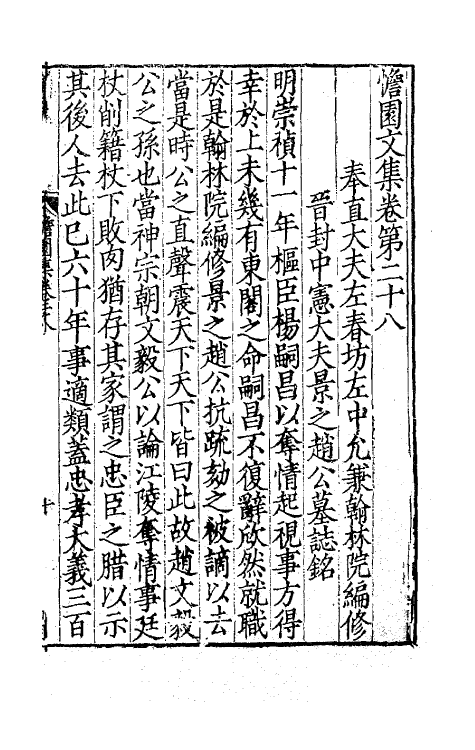 憺園文集卷第二十八
奉直大夫左春坊左中允兼翰林院編修
晉封中憲大夫景之趙公墓誌銘
明崇禎十一年樞臣楊嗣昌以奪情起視事方得
幸於上未幾有東閣之命嗣昌不復辭欣然就職
於是翰林院編修景之趙公抗疏劾之被謫以去
當是時公之直聲震天下天下皆曰此故趙文毅
公之孫也當神宗朝文毅公以論江陵奪情事廷
杖削籍杖下敗肉猶存其家謂之忠臣之腊以示
其後人去此巳六十年事適類蓋忠孝大義三百
憺園集卷二十八